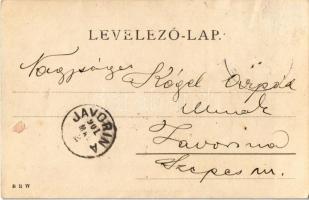 LEVELEZŐ-LAP.
Nagyságos Kógel Árpád
Urnak
Javorina
Szepes m.
JAVORINA